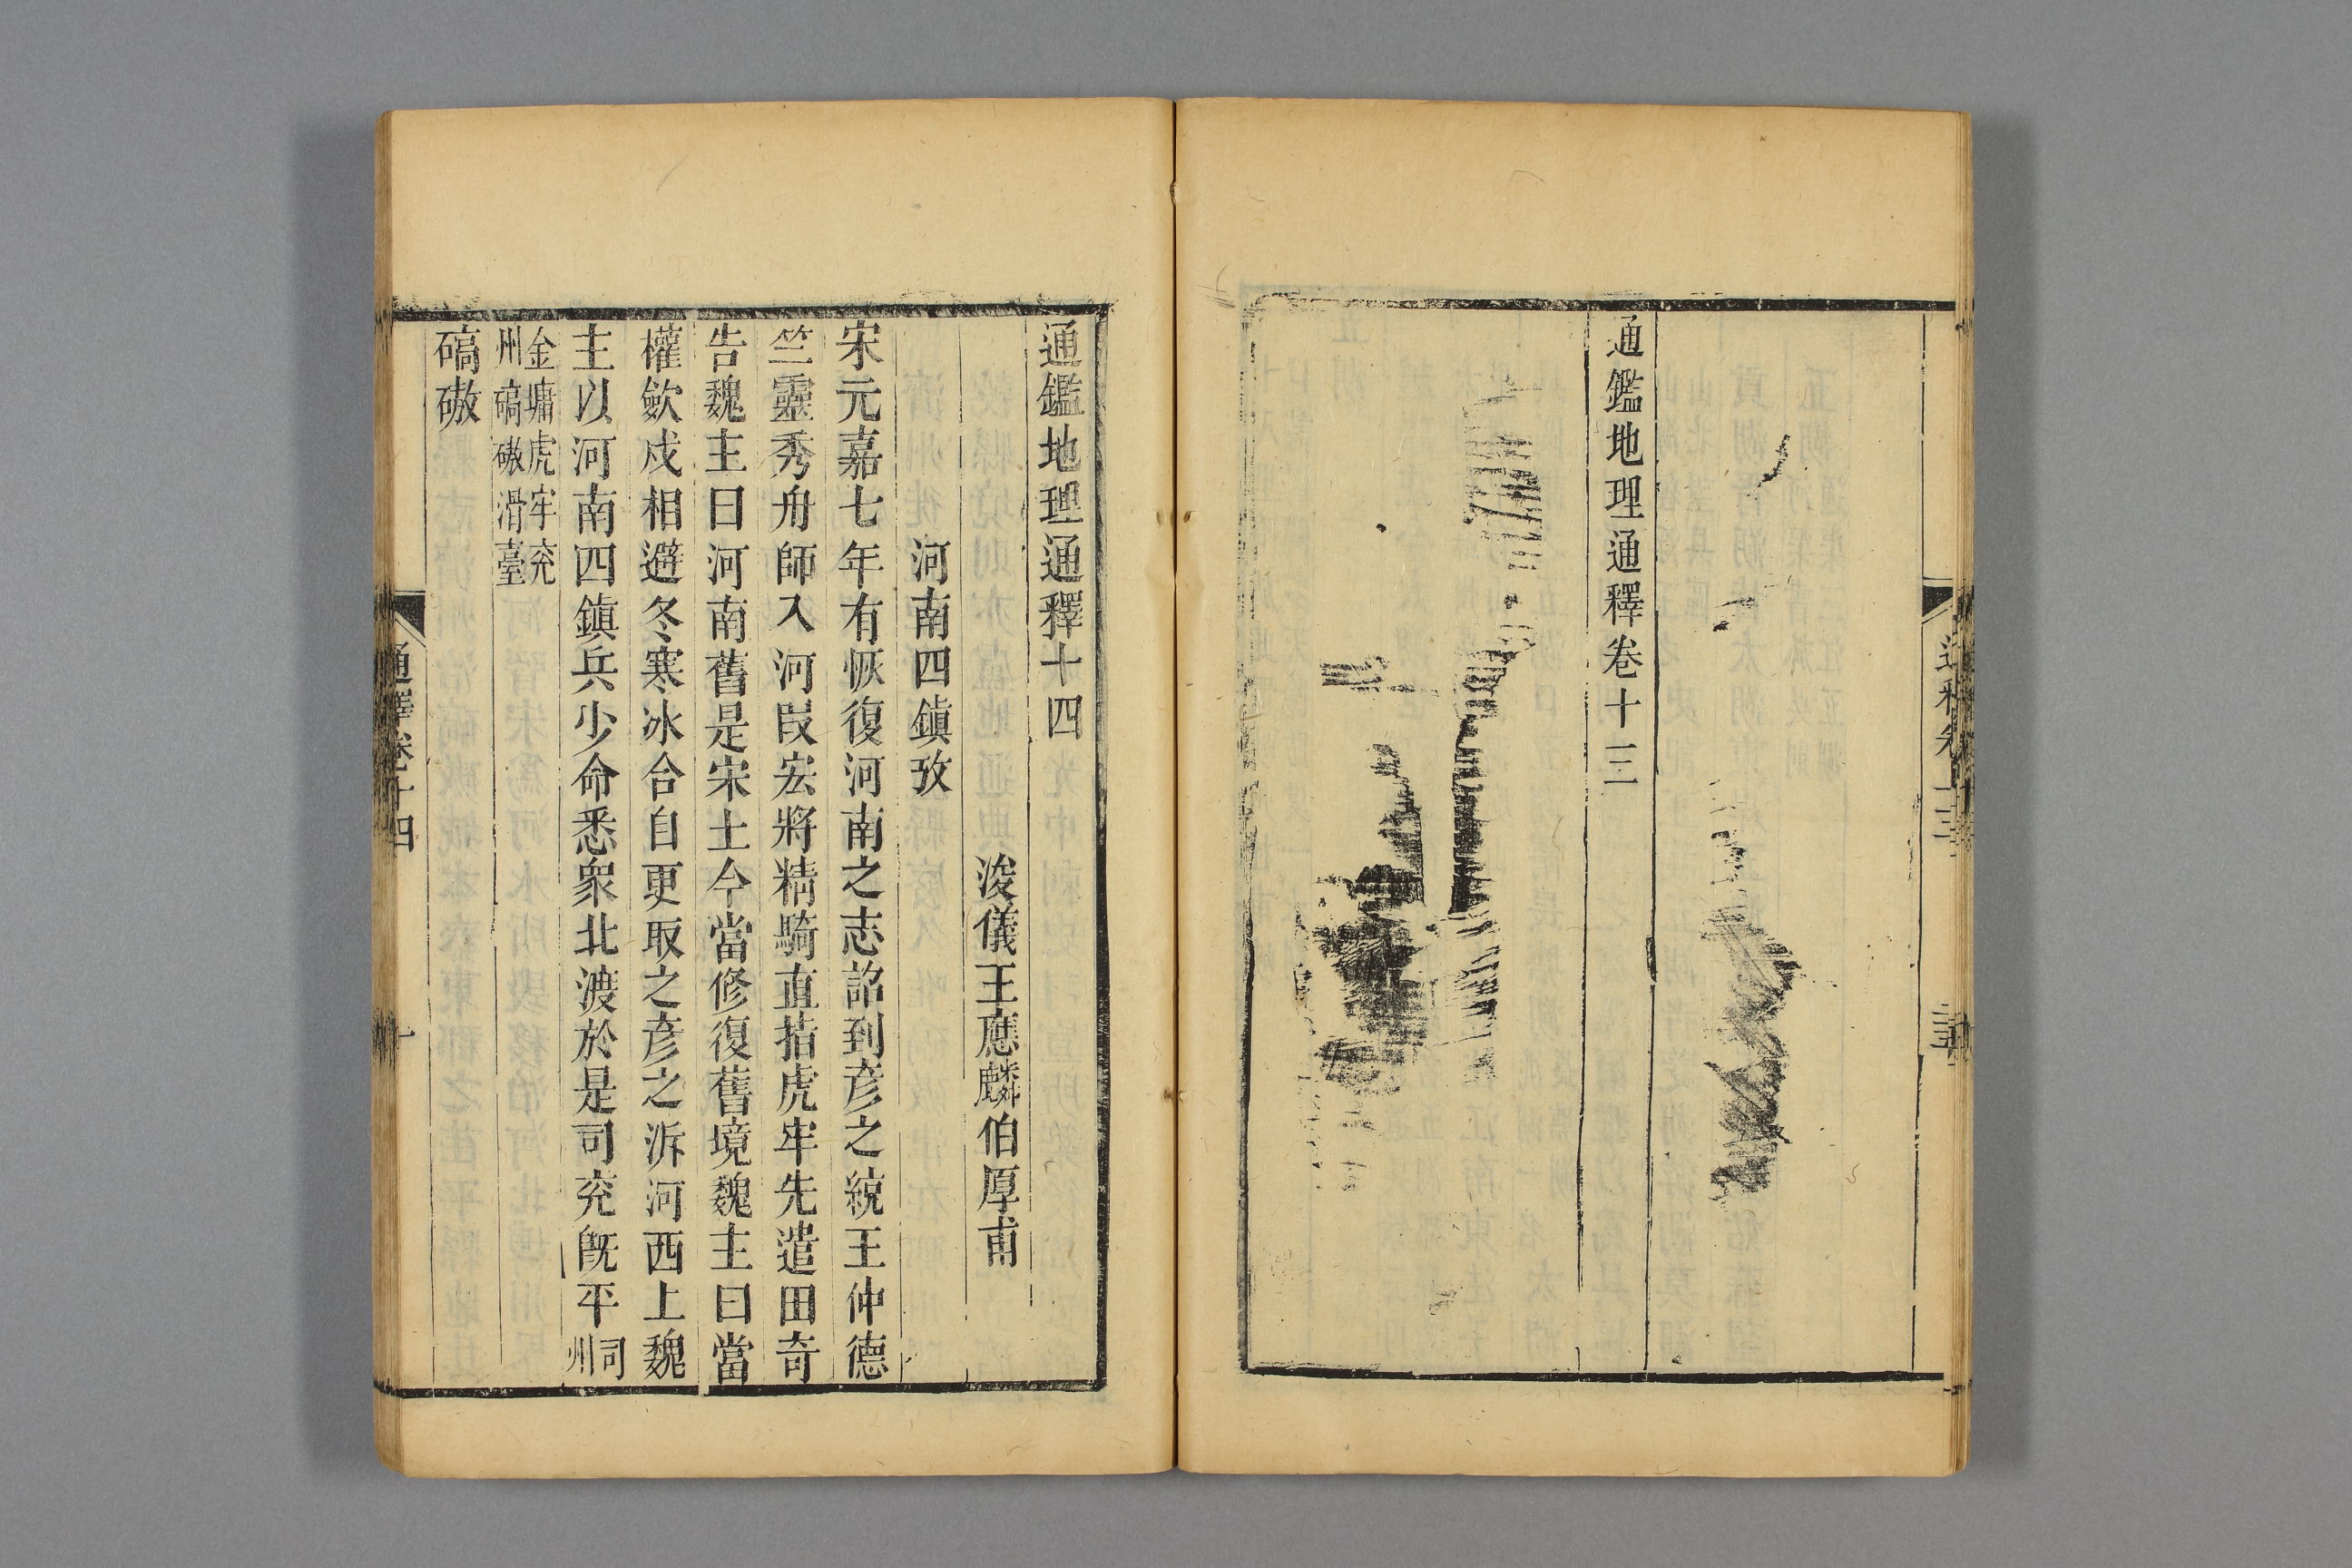 通鑑地理通釋卷十三
通鑑地理通釋十四
浚儀王應麟伯厚甫
河南四鎮攷
宋元嘉七年有恢復河南之志詔到彦之統王仲德
竺靈秀舟師入河段宏將精騎直指虎牢先遣田奇
告魏主曰河南舊是宋土今當修復舊境魏主曰當
權歛戍相避冬寒冰合自更取之彦之泝河西上魏
主以河南四鎮兵少命悉衆北渡於是司兖既平司州
金墉虎牢兖
州碻磝滑臺
碻磝
通釋卷十四
一